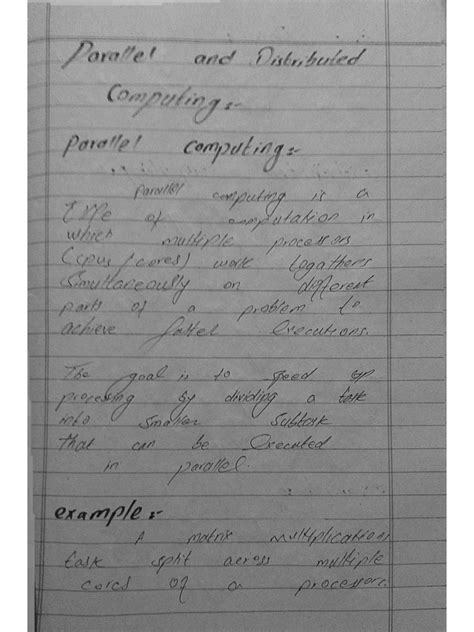 Parallel and Distributed
Computing:-
Parallel computing:-
Parallel computing is a
type of computation in
which multiple processors
(cpus/cores) work togathers
simultaneously on different
parts of a problem to
achieve faster executions.
The goal is to speed up
processing by dividing a task
into smaller subtask
that can be executed
in parallel.
example:-
A matrix multiplications
task split across multiple
cores of a processors.